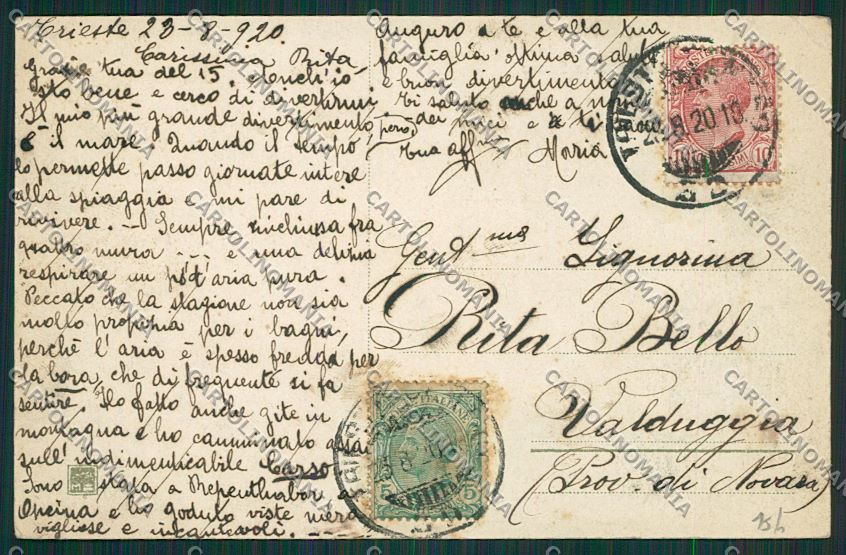 Trieste 23-8-920.
Carissima Rita
Grazie tua del 15. Anch'io
sto bene e cerco di divertirmi
Il mio più grande divertimento
è il mare. Quando il tempo
lo permette passo giornate intere
alla spiaggia e mi pare di
rivivere. — Sempre rinchiusa fra
quattro mura ... è una delizia
respirare un po' d'aria pura.
Peccato che la stagione non sia
molto propizia per i bagni,
perchè l'aria è spesso fredda per
la bora, che di frequente si fa
sentire. Ho fatto anche gite in
montagna e ho camminato assai
sull'indimenticabile Carso.
Sono stata a Repentabor a
Opcina e ho goduto viste mera
vigliose e incantevoli. —
Auguro a te e alla tua
famiglia ottima salute
e buon divertimento.
Ti saluto anche a nome
dei miei e
(però)
tua aff.ma Maria
Gent.ma Signorina
Rita Bello
Valduggia
(Prov. di Novara)
POSTE ITALIANE
10
5
TRIESTE
23.8.20.18
CARTOLINOMANIA